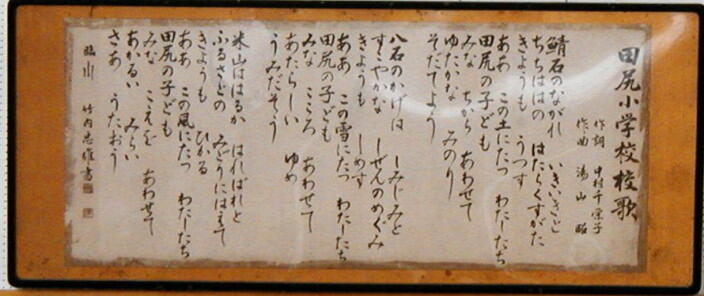 田尻小学校校歌
作詞 中村千栄子
作曲 湯山昭
鯖石のながれ いきいきと
ちちははの はたらくすがた
きょうも うつす
ああ この土にたつ わたしたち
田尻の子ども
みな ちから あわせて
ゆたかな みのり
そだてよう
八石のかげは しみじみと
すこやかな しぜんのめぐみ
きょうも しめす
ああ この雪にたつ わたしたち
田尻の子ども
みな こころ あわせて
あたらしい ゆめ
うみだそう
米山ははるか はればれと
ふるさとの みどりにはえて
きょうも ひかる
ああ この風にたつ わたしたち
田尻の子ども
みな こえを あわせて
あかるい みらい
さあ うたおう
竹内忠雄書